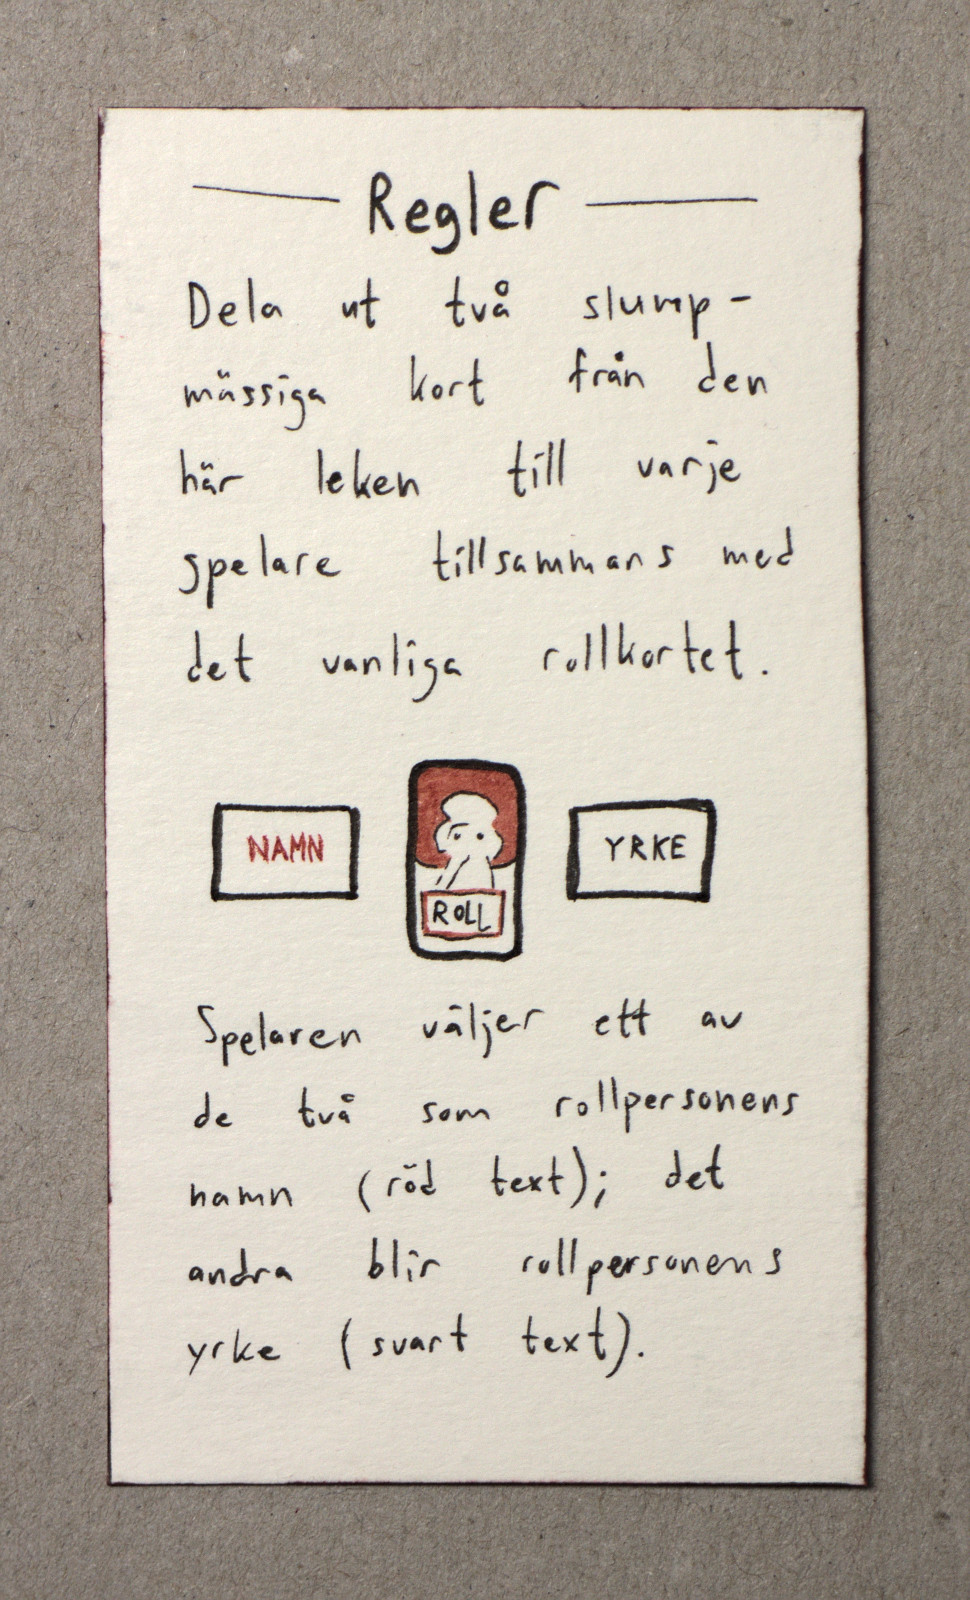 Regler
Dela ut två slump-
mässiga kort från den
här leken till varje
spelare tillsammans med
det vanliga rollkortet.
NAMN ROLL YRKE
Spelaren väljer ett av
de två som rollpersonens
namn (röd text); det
andra blir rollpersonens
yrke (svart text).